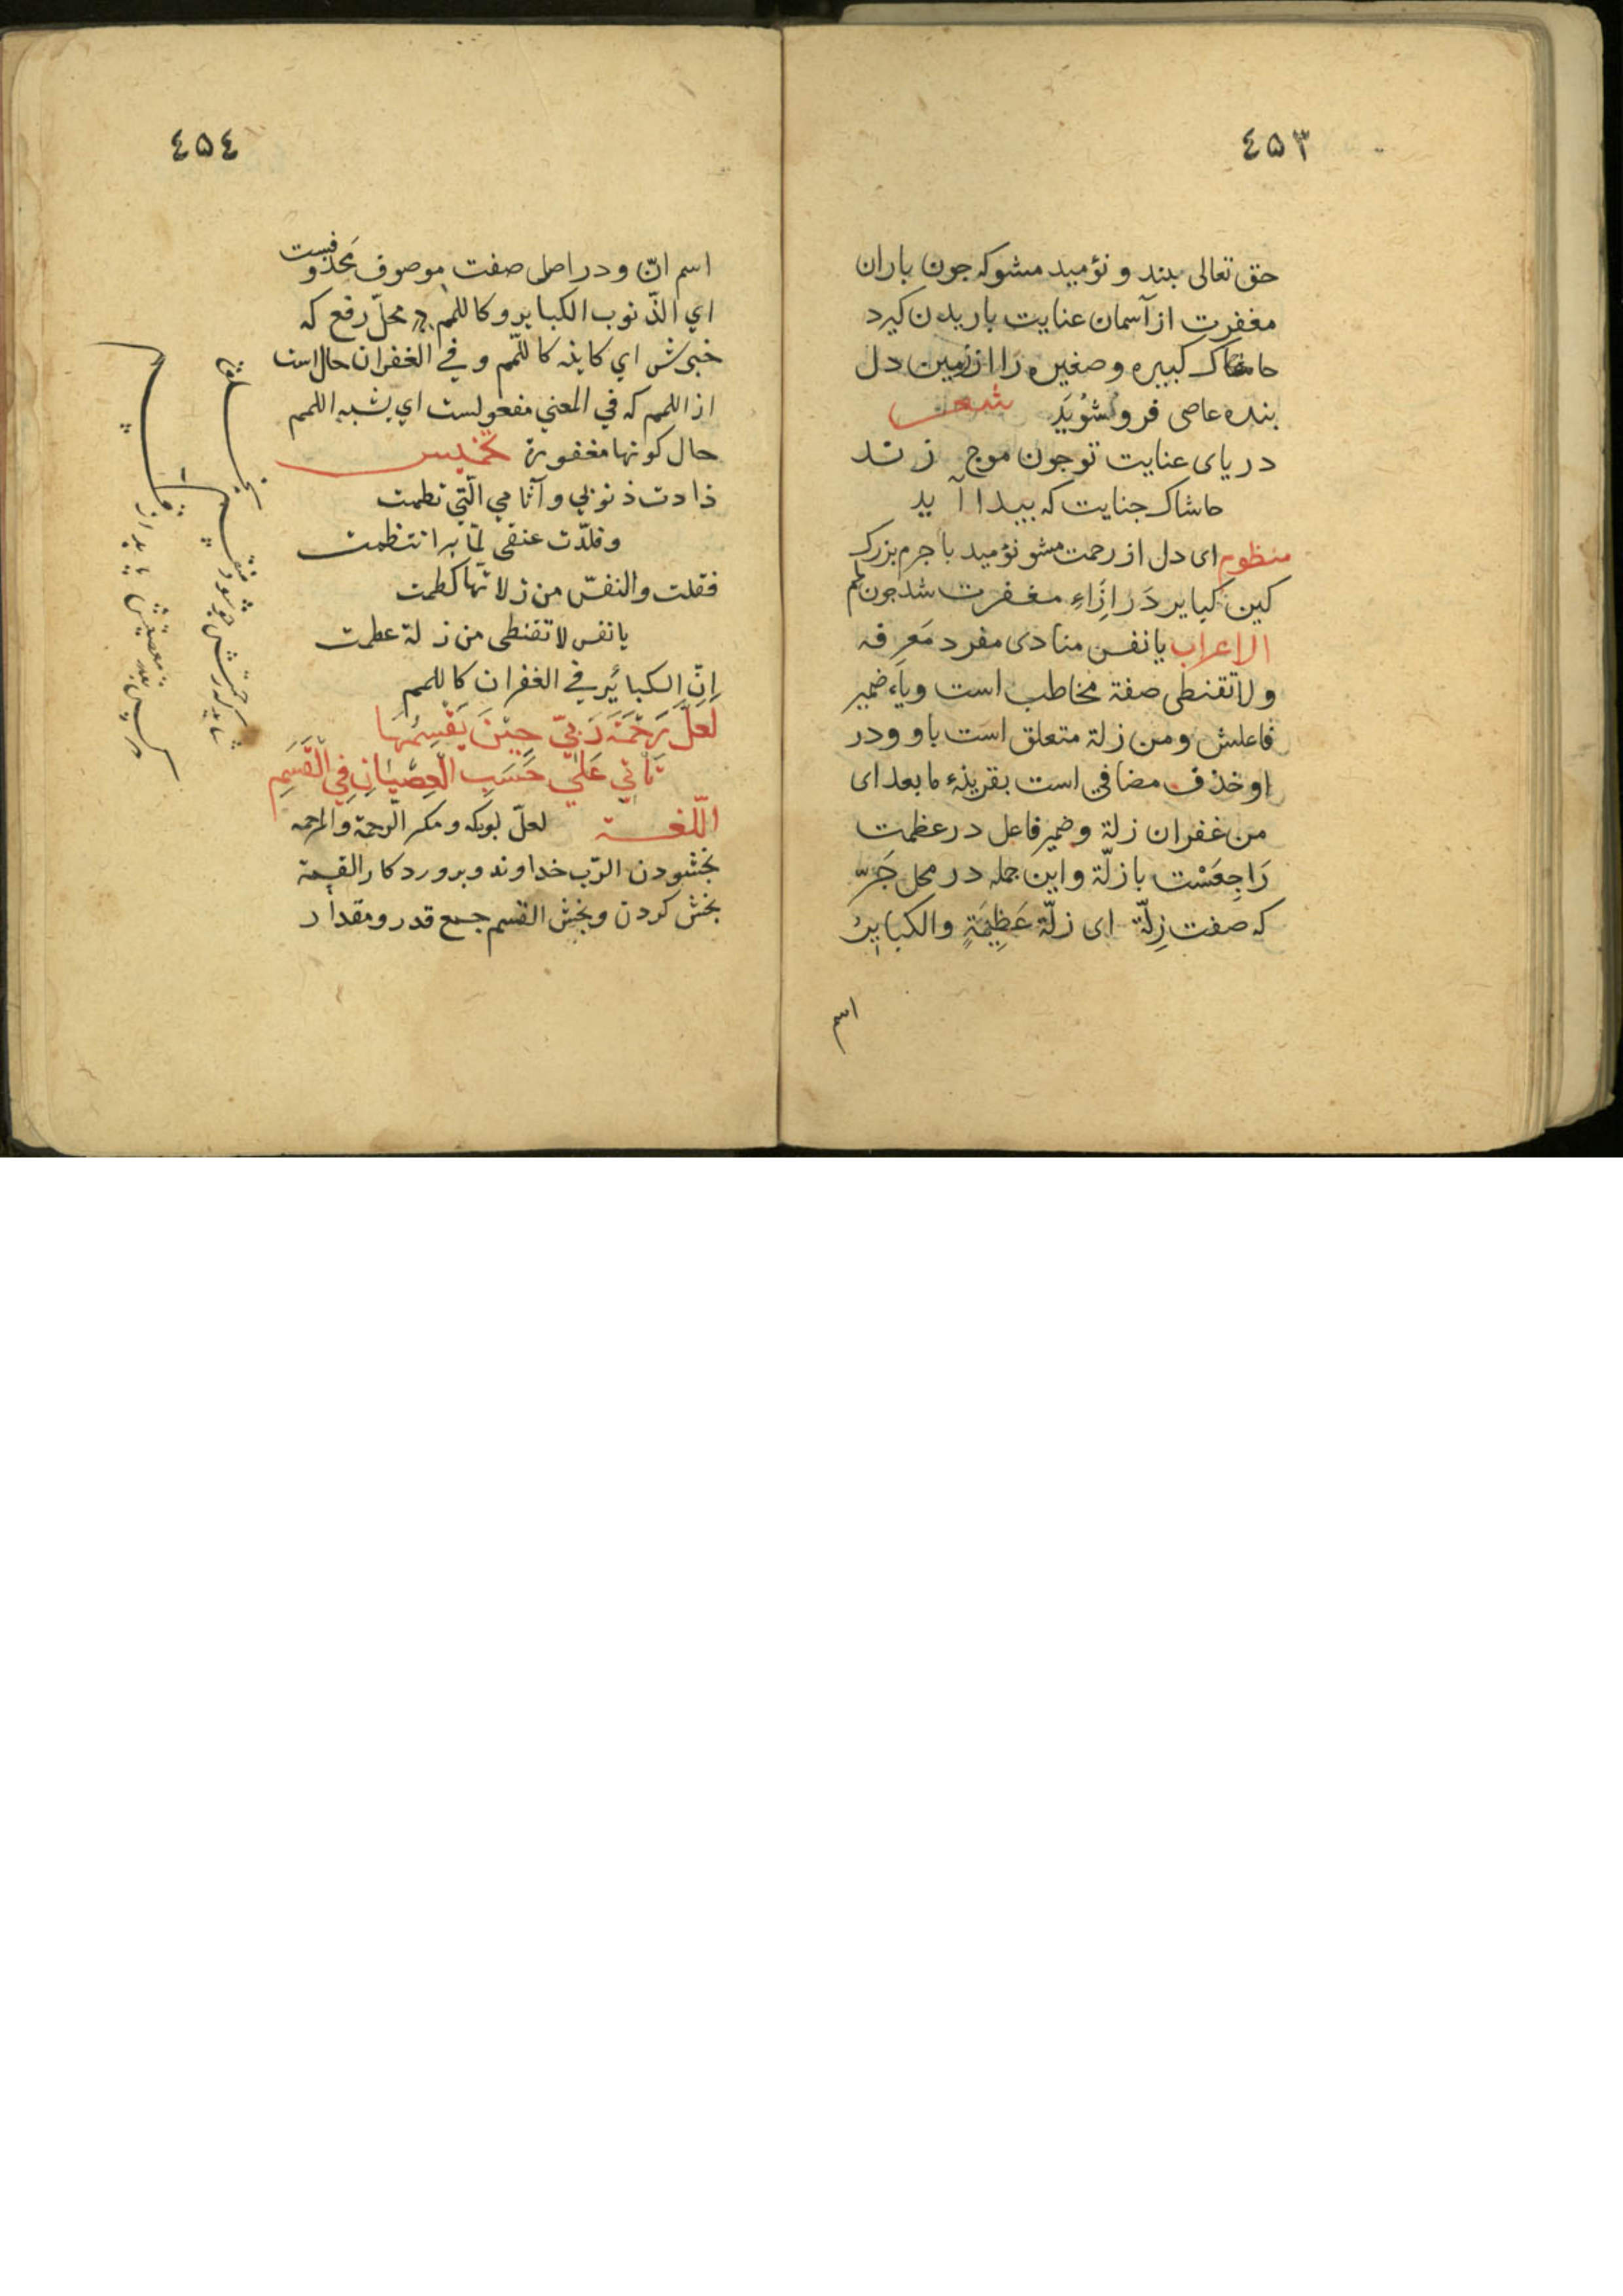 ٤٥٣
حق تعالی بند و نؤمید مشو که جون باران
مغفرت از آسمان عنایت باریدن کیرد
خاشاک کبیره و صغیره را از زمین دل
بنده عاصی فرو شُویَد شعر
دریای عنایت تو جون موج زند
خاشاک جنایت که بیدا آید
منظوم ای دل از رحمت مشو نؤمید با جرم بزرک
کین کبایر دَر ازَاءِ مغفرت شد جون لمم
الاعراب یا نفس منادی مفرد مَعرفه
و لا تقنطی صفة مخاطب است ویاء ضمیر
فاعلش و من زلة متعلق است باو و در
او حذف مضافي است بقرینهٔ ما بعد ای
من غفران زلة و ضمیر فاعل در عظمت
رَاجِعَسْت با زلّة و این جمله در محل جَرّ
که صفت زِلّة ای زلّة عَظِيمَةٍ والکبایرُ
اسم
٤٥٤
اسم انّ و در اصل صفت موصوف مَحذوفست
اي الذّنوب الکبایر و کاللمم در محلّ رفع که
خبرش اي کاینه کاللّمم و في الغفران حال است
از اللمم که في المعني مفعولست اي یشبه اللمم
حال کونها مغفورة تخمیس
زادت ذنوبي و آثامي الّتي نظمت
و قلدّت عنقي لمّا بها انتظمت
فقلت والنفسّ من زلاتها کظمت
یا نفس لا تقنطی من زلة عظمت
اِنّ الکبائرَ في الغفران کاللمم
لَعَلَّ رَحْمَةَ رَبِّي حِيْنَ يَقْسِمُهَا
تَأْتي عَلَيٰ حَسَبِ الْعِصْيَانِ فِي الْقَسَمِ
اللّغة لعلّ بوکه و مکر الرّحمة والمرحمه
بخشودن الرّب خداوند و بروردکار القسمة
بخش کردن و بخش القسم جمع قدر و مقدار